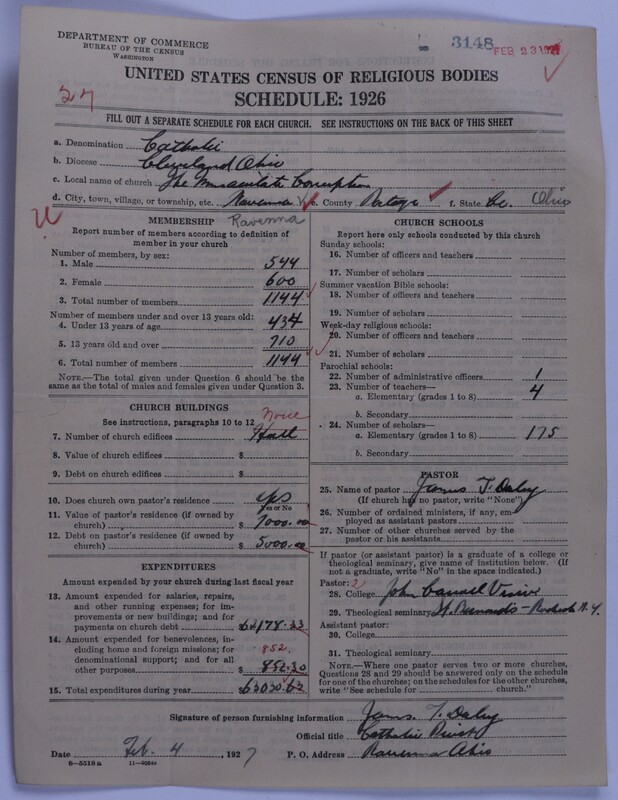 DEPARTMENT OF COMMERCE
BUREAU OF THE CENSUS
WASHINGTON
3148
FEB 23 1927
UNITED STATES CENSUS OF RELIGIOUS BODIES
SCHEDULE: 1926
27
FILL OUT A SEPARATE SCHEDULE FOR EACH CHURCH. SEE INSTRUCTIONS ON THE BACK OF THIS SHEET
a. Denomination Catholic
b. Diocese Cleveland Ohio
c. Local name of church The Immaculate Conception
d. City, town, village, or township, etc. Ravenna e. County Portage f. State Ohio
MEMBERSHIP Ravenna
Report number of members according to definition of member in your church
Number of members, by sex:
1. Male 544
2. Female 600
3. Total number of members 1144
Number of members under and over 13 years old:
4. Under 13 years of age 434
5. 13 years old and over 710
6. Total number of members 1144
NOTE.—The total given under Question 6 should be the
same as the total of males and females given under Question 3.
CHURCH BUILDINGS
See instructions, paragraphs 10 to 12 none
7. Number of church edifices Hall
8. Value of church edifices $
9. Debt on church edifices $
10. Does church own pastor's residence yes
Yes or No
11. Value of pastor's residence (if owned by
church) $ 7000.00
12. Debt on pastor's residence (if owned by
church) $ 5000.00
EXPENDITURES
Amount expended by your church during last fiscal year
13. Amount expended for salaries, repairs,
and other running expenses; for im-
provements or new buildings; and for
payments on church debt $ 62178.33
14. Amount expended for benevolences,
including home and foreign missions; for 852.
denominational support; and for all
other purposes $ 852.30
15. Total expenditures during year $ 63030.63
CHURCH SCHOOLS
Report here only schools conducted by this church
Sunday schools:
16. Number of officers and teachers
17. Number of scholars
Summer vacation Bible schools:
18. Number of officers and teachers
19. Number of scholars
Week-day religious schools:
20. Number of officers and teachers
21. Number of scholars
Parochial schools:
22. Number of administrative officers 1
23. Number of teachers—
a. Elementary (grades 1 to 8) 4
b. Secondary
24. Number of scholars—
a. Elementary (grades 1 to 8) 175
b. Secondary
PASTOR
25. Name of pastor James T. Daley
(If church has no pastor, write "None")
26. Number of ordained ministers, if any, em-
ployed as assistant pastors
27. Number of other churches served by the
pastor or his assistants
If pastor (or assistant pastor) is a graduate of a college or
theological seminary, give name of institution below. (If
not a graduate, write "No" in the space indicated.)
Pastor: 2
28. College John Carroll
29. Theological seminary St. Bernards - Rochester N.Y.
Assistant pastor:
30. College
31. Theological seminary
NOTE.—Where one pastor serves two or more churches,
Questions 28 and 29 should be answered only on the schedule
for one of the churches; on the schedules for the other churches,
write "See schedule for church."
Signature of person furnishing information James T. Daley
Official title Catholic Priest
Date Feb. 4, 1927 P. O. Address Ravenna Ohio
8—5518 a